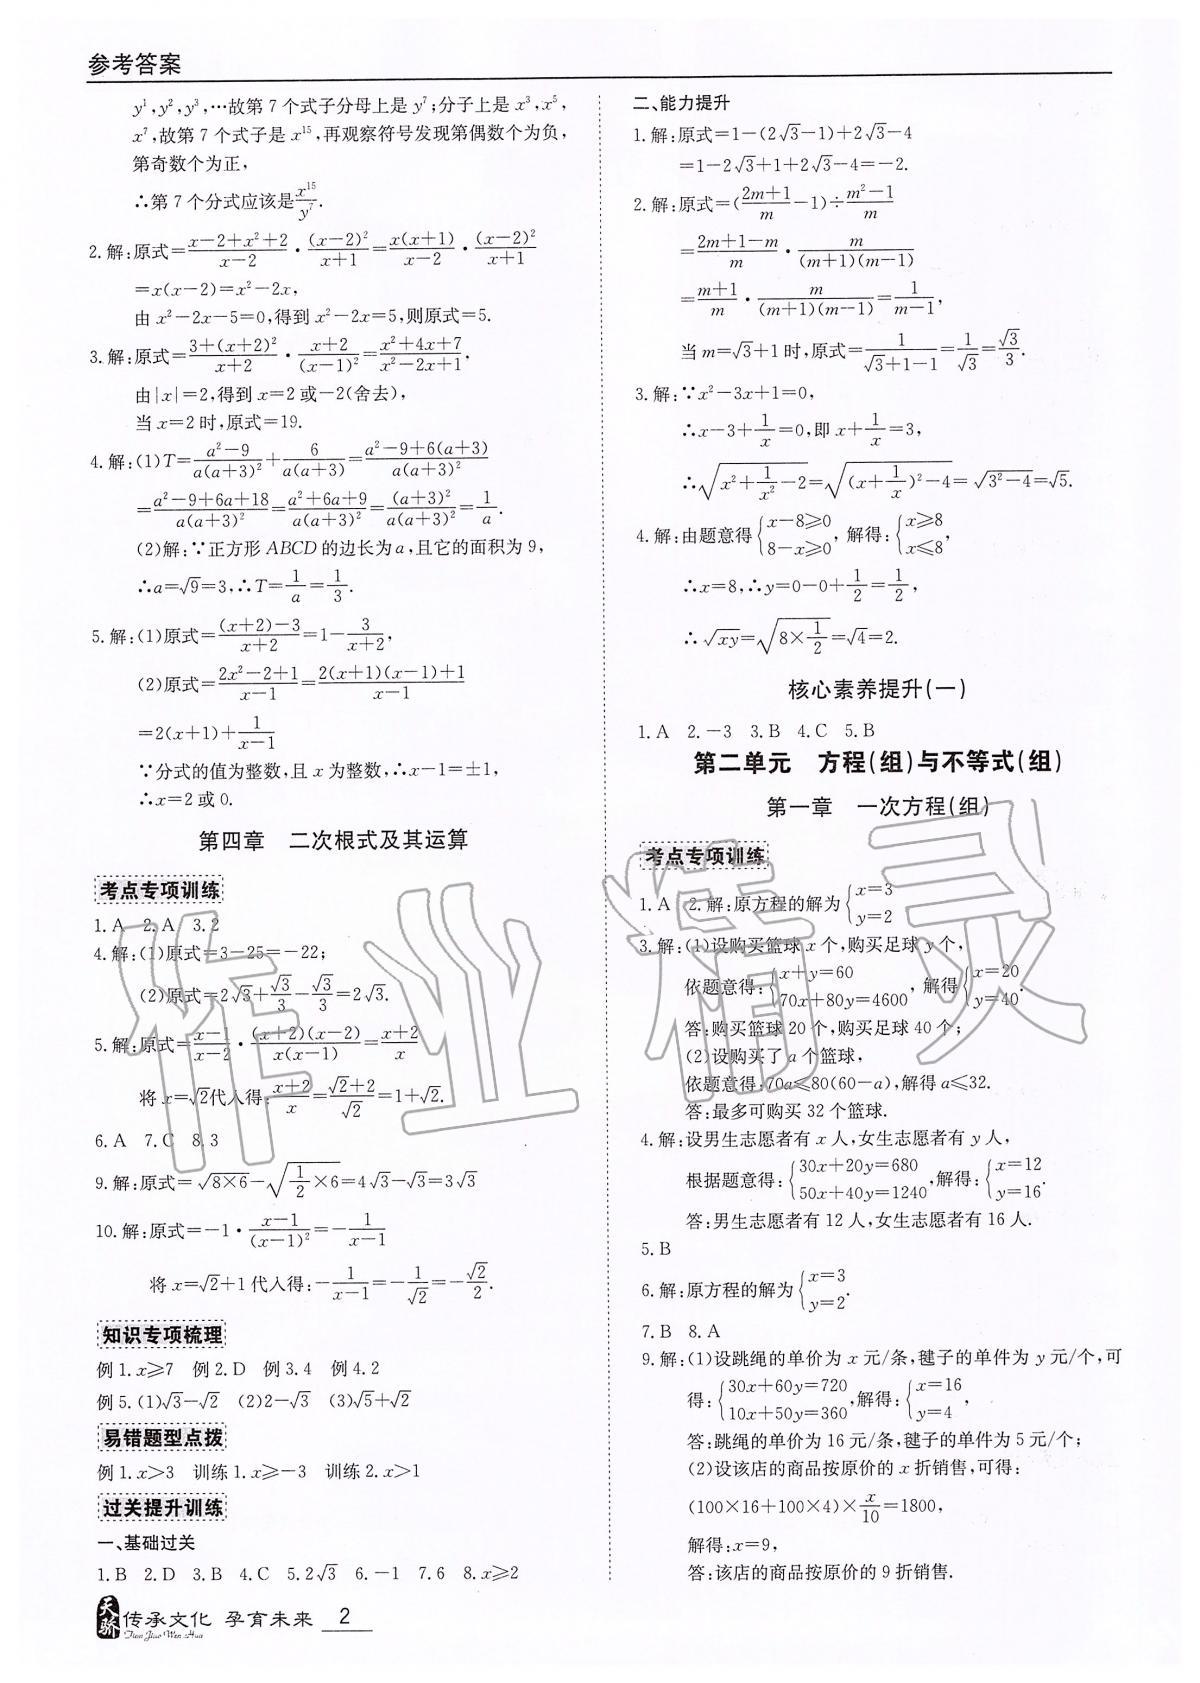 参考答案
y¹,y²,y³,…故第7个式子分母上是y⁷;分子上是x³,x⁵,
x⁷,故第7个式子是x¹⁵,再观察符号发现第偶数个为负,
第奇数个为正,
∴第7个分式应该是x¹⁵/y⁷.
2.解:原式=(x-2+x²+2)/(x-2)·(x-2)²/(x+1)=x(x+1)/(x-2)·(x-2)²/(x+1)
=x(x-2)=x²-2x,
由x²-2x-5=0,得到x²-2x=5,则原式=5.
3.解:原式=(3+(x+2)²)/(x+2)·(x+2)/(x-1)²=(x²+4x+7)/(x²-2x+1).
由|x|=2,得到x=2或-2(舍去),
当x=2时,原式=19.
4.解:(1)T=(a²-9)/(a(a+3)²)+6/(a(a+3))=(a²-9+6(a+3))/(a(a+3)²)
=(a²-9+6a+18)/(a(a+3)²)=(a²+6a+9)/(a(a+3)²)=(a+3)²/(a(a+3)²)=1/a.
(2)解:∵正方形ABCD的边长为a,且它的面积为9,
∴a=√9=3,∴T=1/a=1/3.
5.解:(1)原式=((x+2)-3)/(x+2)=1-3/(x+2),
(2)原式=(2x²-2+1)/(x-1)=(2(x+1)(x-1)+1)/(x-1)
=2(x+1)+1/(x-1)
∵分式的值为整数,且x为整数,∴x-1=±1,
∴x=2或0.
第四章 二次根式及其运算
考点专项训练
1.A 2.A 3.2
4.解:(1)原式=3-25=-22;
(2)原式=2√3+√3/3-√3/3=2√3.
5.解:原式=(x-1)/(x-2)·(x+2)(x-2)/(x(x-1))=(x+2)/x
将x=√2代入得:(x+2)/x=(√2+2)/√2=1+√2.
6.A 7.C 8.3
9.解:原式=√(8×6)-√(1/2×6)=4√3-√3=3√3
10.解:原式=-1·(x-1)/(x-1)²=-1/(x-1)
将x=√2+1代入得:-1/(x-1)=-1/√2=-√2/2.
知识专项梳理
例1.x≥7 例2.D 例3.4 例4.2
例5.(1)√3-√2 (2)2-√3 (3)√5+√2
易错题型点拨
例1.x>3 训练1.x≥-3 训练2.x>1
过关提升训练
一、基础过关
1.B 2.D 3.B 4.C 5.2√3 6.-1 7.6 8.x≥2
二、能力提升
1.解:原式=1-(2√3-1)+2√3-4
=1-2√3+1+2√3-4=-2.
2.解:原式=((2m+1)/m-1)÷(m²-1)/m
=(2m+1-m)/m·m/((m+1)(m-1))
=(m+1)/m·m/((m+1)(m-1))=1/(m-1),
当m=√3+1时,原式=1/(√3+1-1)=1/√3=√3/3.
3.解:∵x²-3x+1=0,
∴x-3+1/x=0,即x+1/x=3,
∴√(x²+1/x²-2)=√((x+1/x)²-4)=√(3²-4)=√5.
4.解:由题意得{x-8≥0 8-x≥0,解得:{x≥8 x≤8,
∴x=8,∴y=0-0+1/2=1/2,
∴√(xy)=√(8×1/2)=√4=2.
核心素养提升(一)
1.A 2.-3 3.B 4.C 5.B
第二单元 方程(组)与不等式(组)
第一章 一次方程(组)
考点专项训练
1.A 2.解:原方程的解为{x=3 y=2
3.解:(1)设购买篮球x个,购买足球y个,
依题意得:{x+y=60 70x+80y=4600,解得{x=20 y=40.
答:购买篮球20个,购买足球40个;
(2)设购买了a个篮球,
依题意得:70a≤80(60-a),解得a≤32.
答:最多可购买32个篮球.
4.解:设男生志愿者有x人,女生志愿者有y人,
根据题意得:{30x+20y=680 50x+40y=1240,解得:{x=12 y=16.
答:男生志愿者有12人,女生志愿者有16人.
5.B
6.解:原方程的解为{x=3 y=2.
7.B 8.A
9.解:(1)设跳绳的单价为x元/条,毽子的单件为y元/个,可
得:{30x+60y=720 10x+50y=360,解得:{x=16 y=4,
答:跳绳的单价为16元/条,毽子的单件为5元/个;
(2)设该店的商品按原价的x折销售,可得:
(100×16+100×4)×x/10=1800,
解得:x=9,
答:该店的商品按原价的9折销售.
作业精灵
天骄 传承文化 孕育未来 2
Tian Jiao Wen Hua